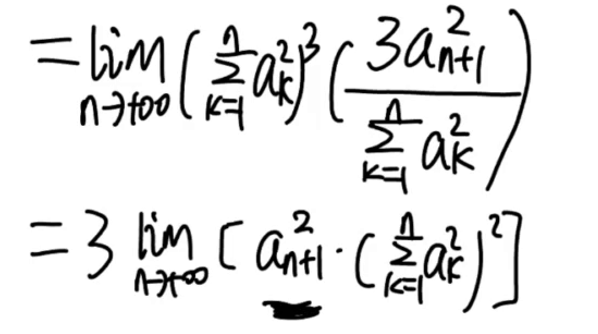 = lim_{n→+∞} (∑_{k=1}^{n} a_k^2)^3 (3a_{n+1}^2 / ∑_{k=1}^{n} a_k^2)
= 3 lim_{n→+∞} [a_{n+1}^2 · (∑_{k=1}^{n} a_k^2)^2]